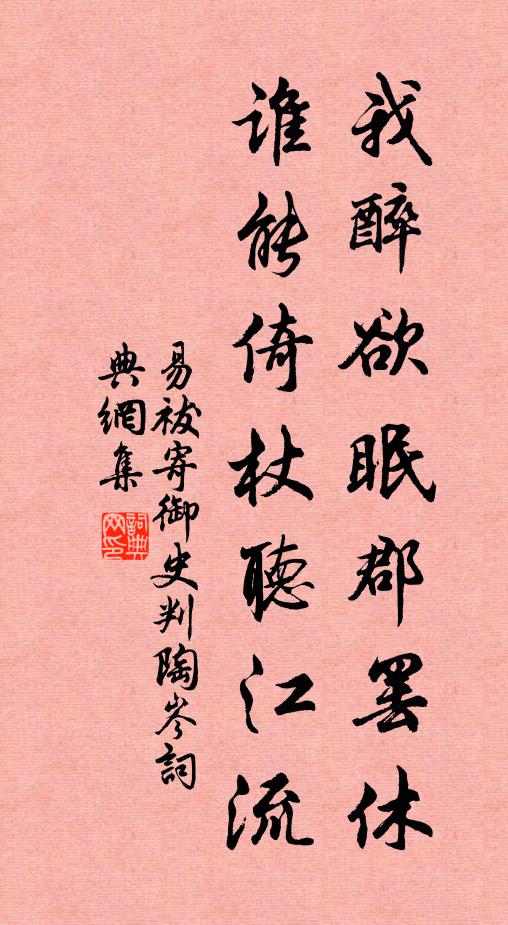 我醉欲眠郡罢休
谁能倚杖聽江流
易祓寄御史判陶岑詞
典網集
詞典网印